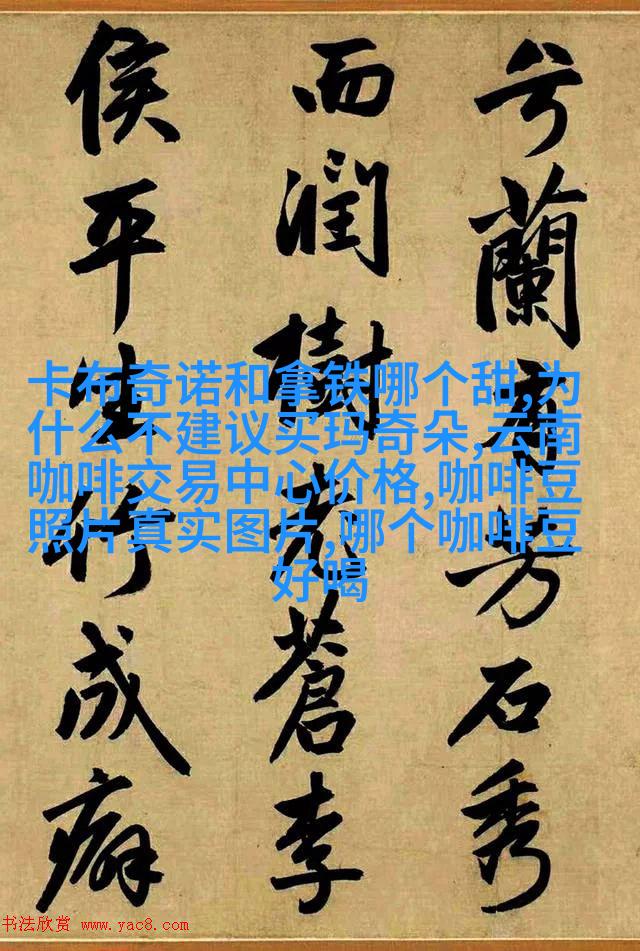 兮蘭有芳石秀
而潤樹老蒼李
侯平生竹成癖
卡布奇诺和拿铁哪个甜,为
什么不建议买玛奇朵,云南
咖啡交易中心价格,咖啡豆
照片真实图片,哪个咖啡豆
好喝
书法欣赏 www.yac8.com